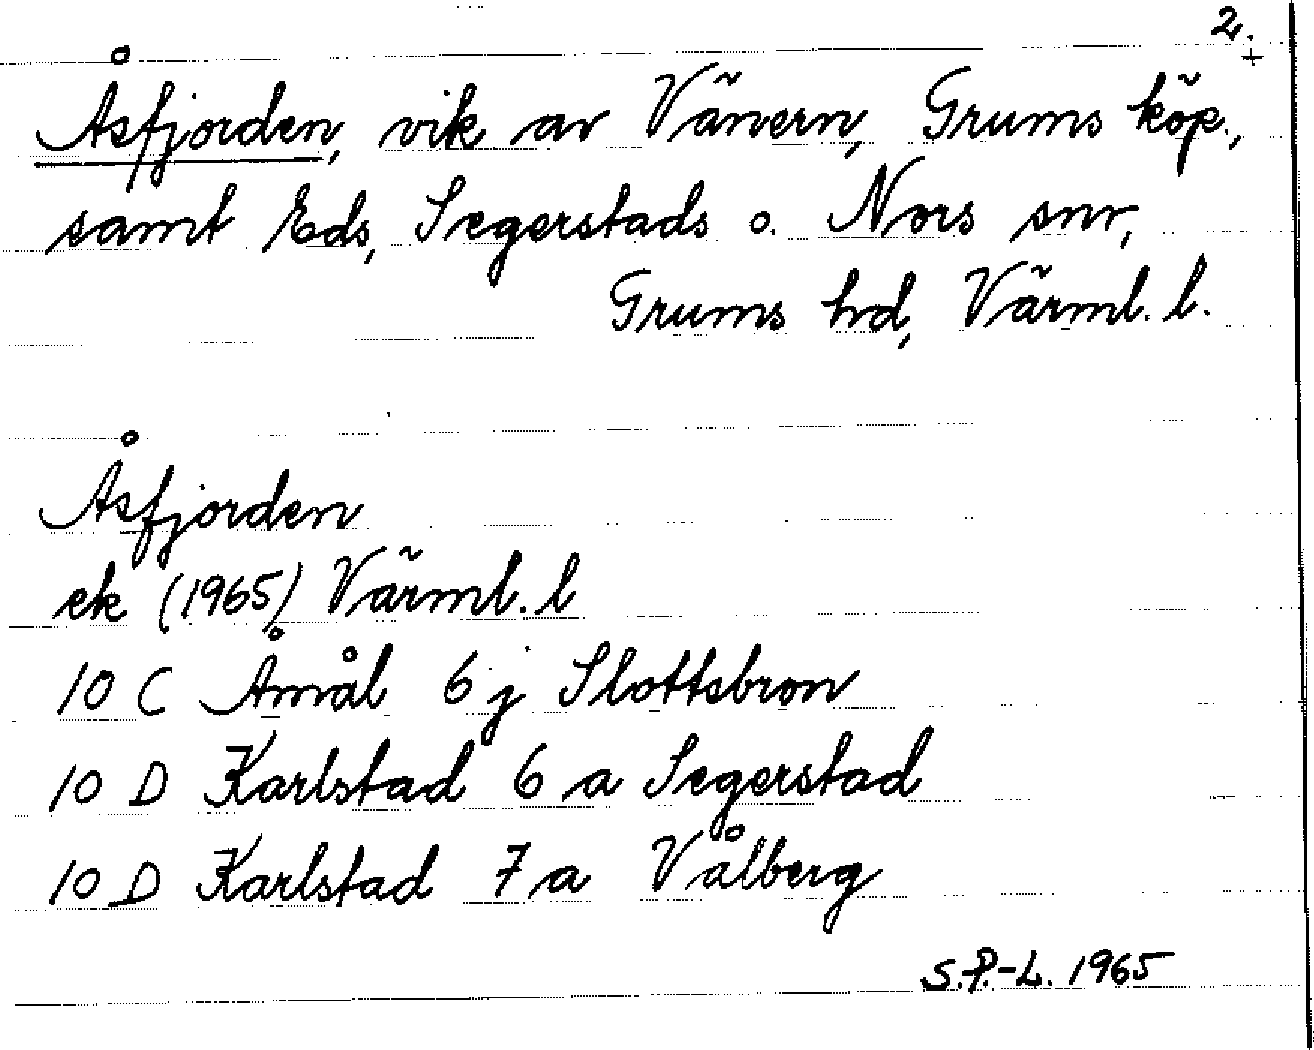 2.
+
Åsfjorden, vik av Vänern, Grums köp.,
samt Eds, Segerstads o. Nors snr,
Grums hd, Värml. l.
Åsfjorden
ek (1965) Värml. l
10 C Åmål 6 j Slottsbron
10 D Karlstad 6 a Segerstad
10 D Karlstad 7 a Vålberg
S.P.-L. 1965